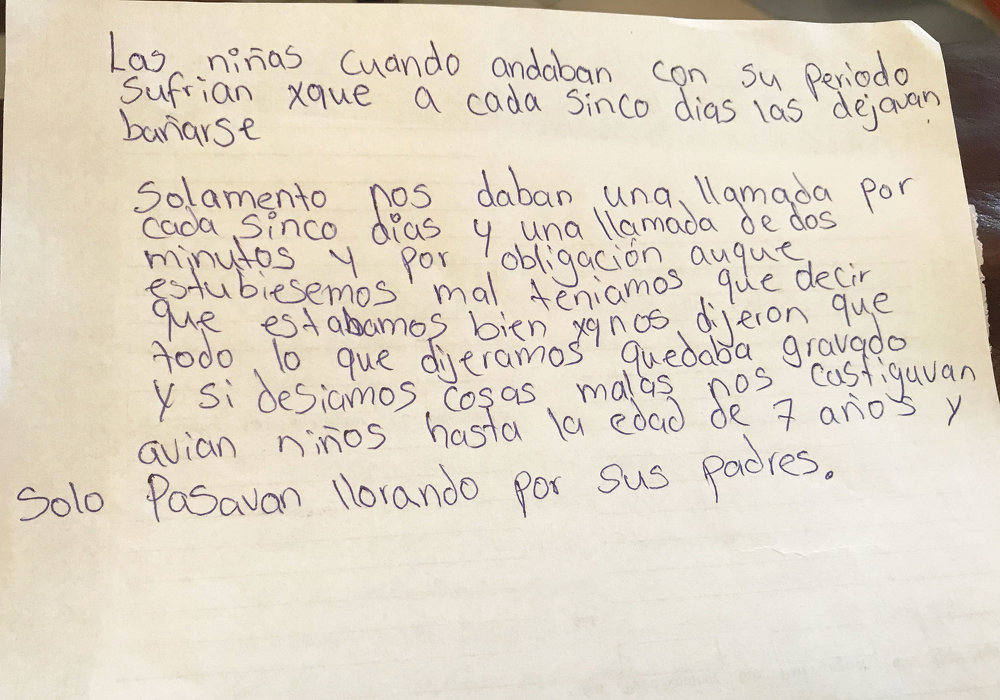 Las niñas cuando andaban con su periodo
sufrian xque a cada sinco dias las dejavan
bañarse
Solamento nos daban una llamada por
cada sinco dias y una llamada de dos
minutos y por obligación auque
estubiesemos mal teniamos que decir
que estabamos bien xqnos dijeron que
todo lo que dijeramos quedaba gravado
y si desiamos cosas malas nos castiguvan
avian niños hasta la edad de 7 años y
Solo Pasavan llorando por sus padres.